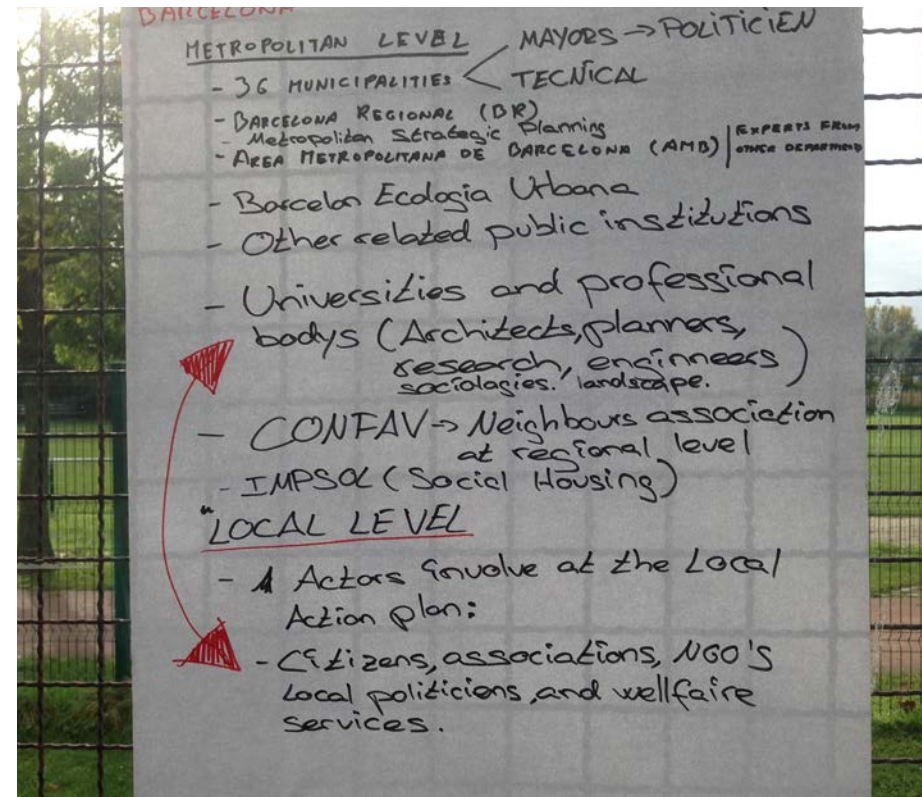 BARCELONA
METROPOLITAN LEVEL
MAYORS → POLITICIEN
- 36 MUNICIPALITIES < TECNICAL
- BARCELONA REGIONAL (BR)
- Metropolitan Strategic Planning
- AREA METROPOLITANA DE BARCELONA (AMB) | EXPERTS FROM
OTHER DEPARTMEND
- Barcelon Ecologia Urbana
- Other related public institutions
- Universities and professional
bodys (Architects, planners,
research, enginneers)
sociologies. landscape.
- CONFAV → Neighbours association
at regional level
- IMPSOL (Social Housing)
"LOCAL LEVEL
- Actors involve at the Local
Action plan:
- Citizens, associations, NGO'S
Local politicians, and wellfaire
services.